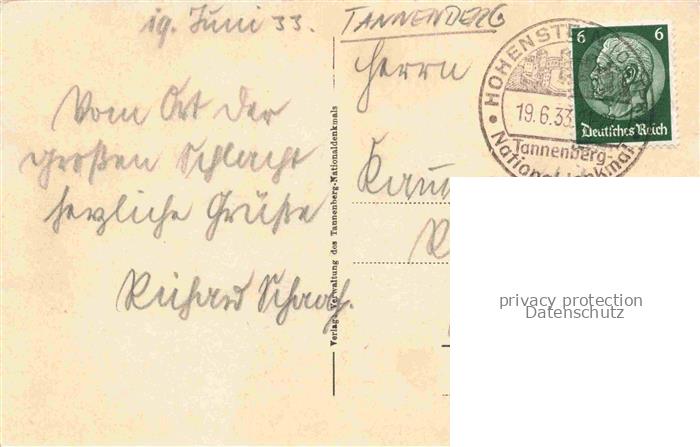 19. Juni 33.
Vom Ort der
großen Schlacht
herzliche Grüße
Richard Schaaf.
Verlag: Verwaltung des Tannenberg-Nationaldenkmals
TANNENBERG
Herrn
HOHENSTEIN
19.6.33
Tannenberg-
Nationaldenkmal
6 6
Deutsches Reich
privacy protection
Datenschutz